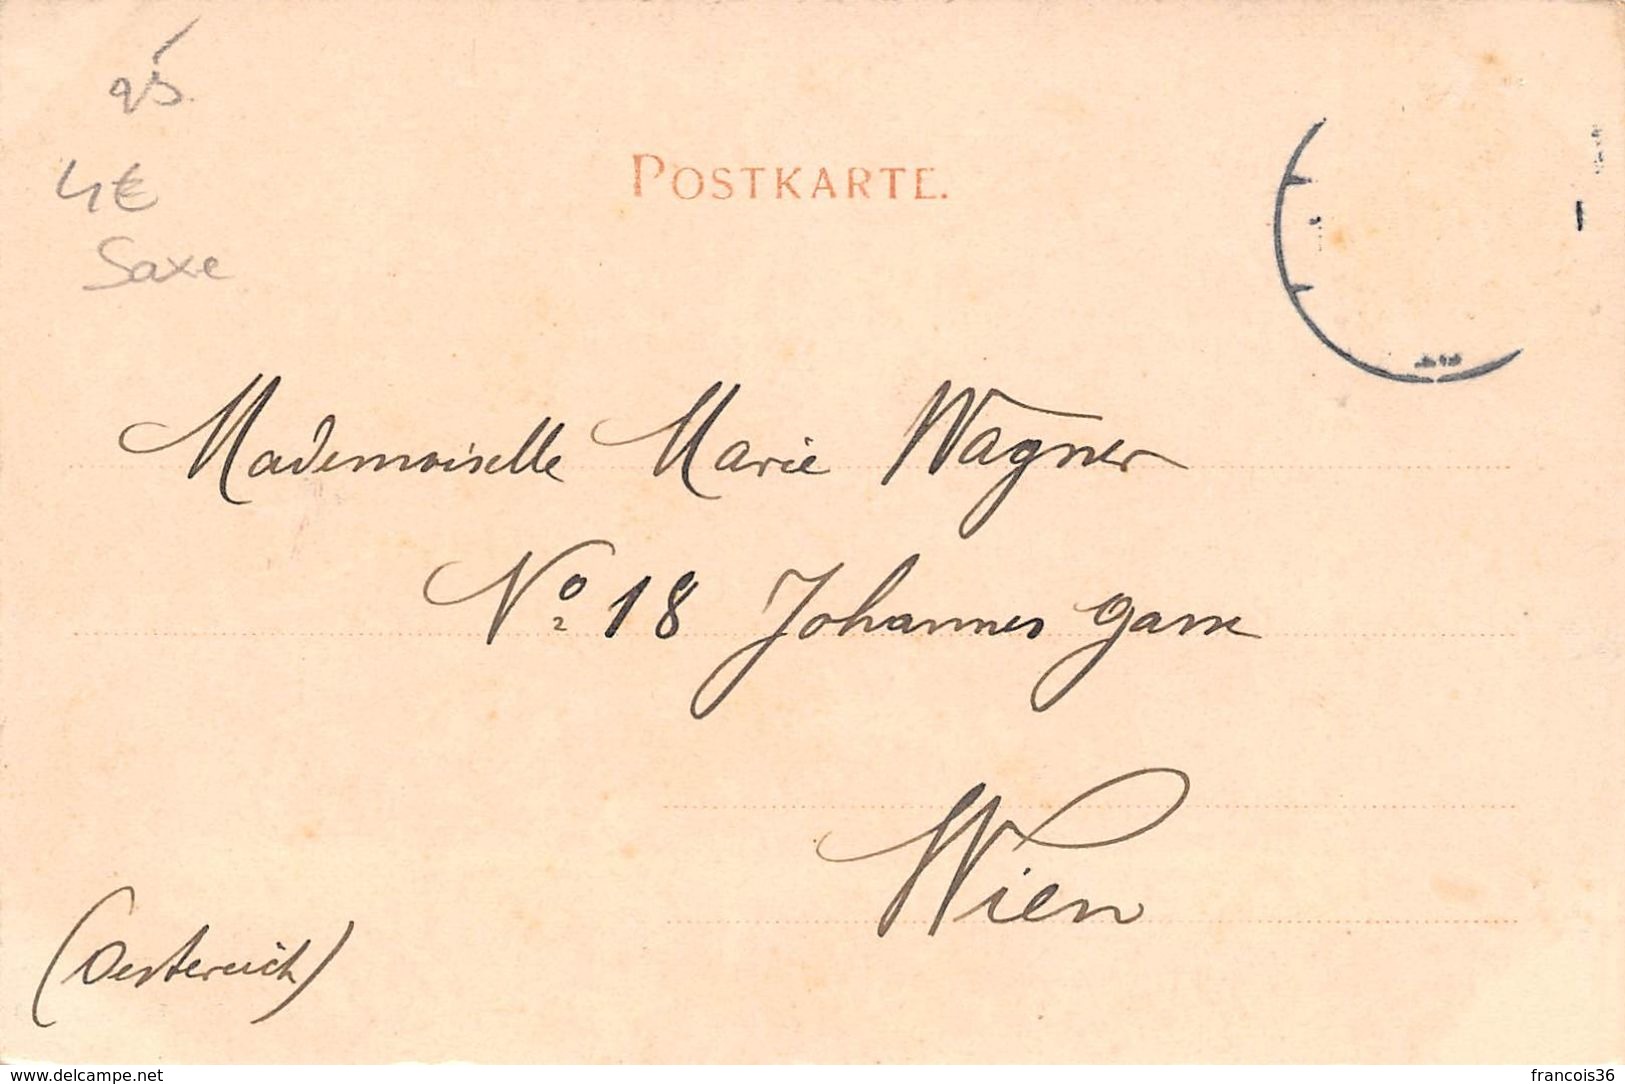 95
4€
Saxe
POSTKARTE.
Mademoiselle Marie Wagner
No 18 Johannes gasse
Wien
(Oesterreich)
www.delcampe.net
francois36